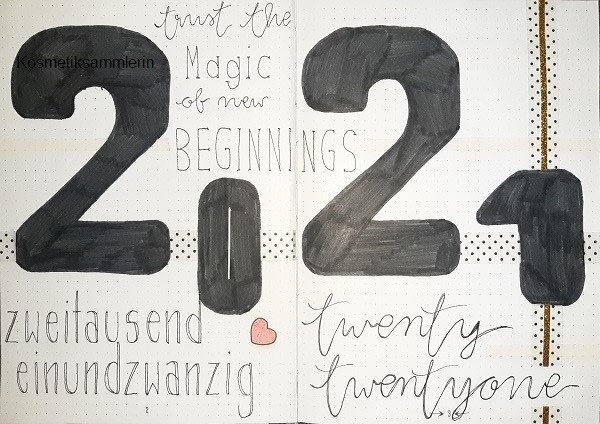 trust the
Kosmetiksammlerin
Magic
of new
BEGINNINGS
2021
zweitausend
einundzwanzig
twenty
twentyone
2
3